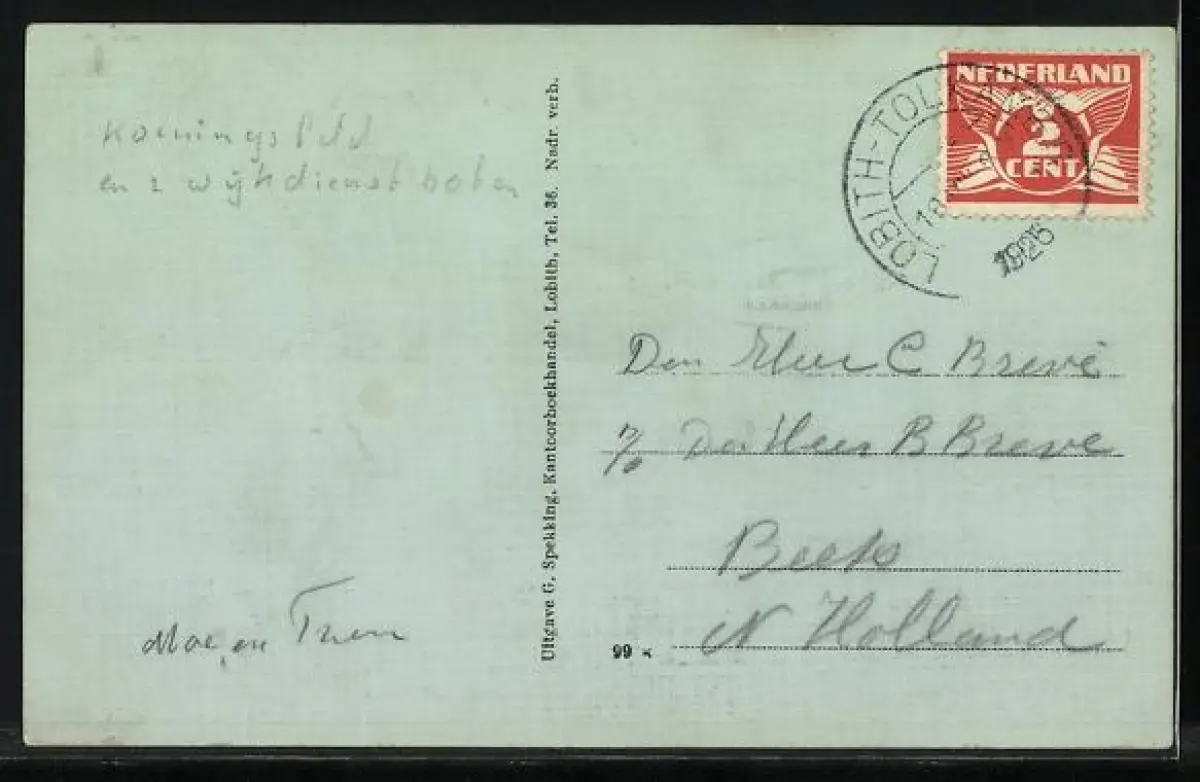 Koenings Pad
en 2 wijkdienst boten
Moe, en Trien
Uitgave G. Spekking, Kantoorboekhandel, Lobith, Tel. 36. Nadr. verb.
99
NEDERLAND
2
CENT
LOBITH-TOL
18
1926
Den Heer C Brevé
p/o Den Heer B Breve
Beets
N Holland